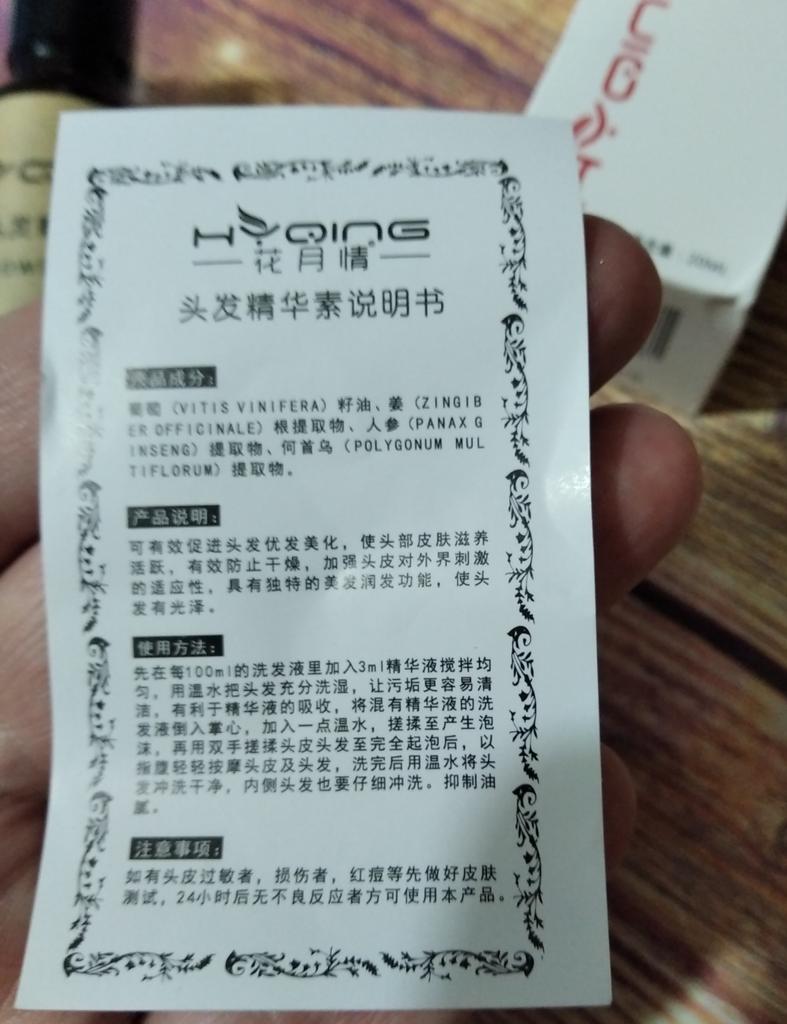 HYQING
花月情
头发精华素说明书
产品成分：
葡萄（VITIS VINIFERA）籽油、姜（ZINGIB
ER OFFICINALE）根提取物、人参（PANAX G
INSENG）提取物、何首乌（POLYGONUM MUL
TIFLORUM）提取物。
产品说明：
可有效促进头发优发美化，使头部皮肤滋养
活跃，有效防止干燥，加强头皮对外界刺激
的适应性，具有独特的美发润发功能，使头
发有光泽。
使用方法：
先在每100ml的洗发液里加入3ml精华液搅拌均
匀，用温水把头发充分洗湿，让污垢更容易清
洁，有利于精华液的吸收，将混有精华液的洗
发液倒入掌心，加入一点温水，搓揉至产生泡
沫，再用双手搓揉头皮头发至完全起泡后，以
指腹轻轻按摩头皮及头发，洗完后用温水将头
发冲洗干净，内侧头发也要仔细冲洗。抑制油
腻。
注意事项：
如有头皮过敏者，损伤者，红痘等先做好皮肤
测试，24小时后无不良反应者方可使用本产品。